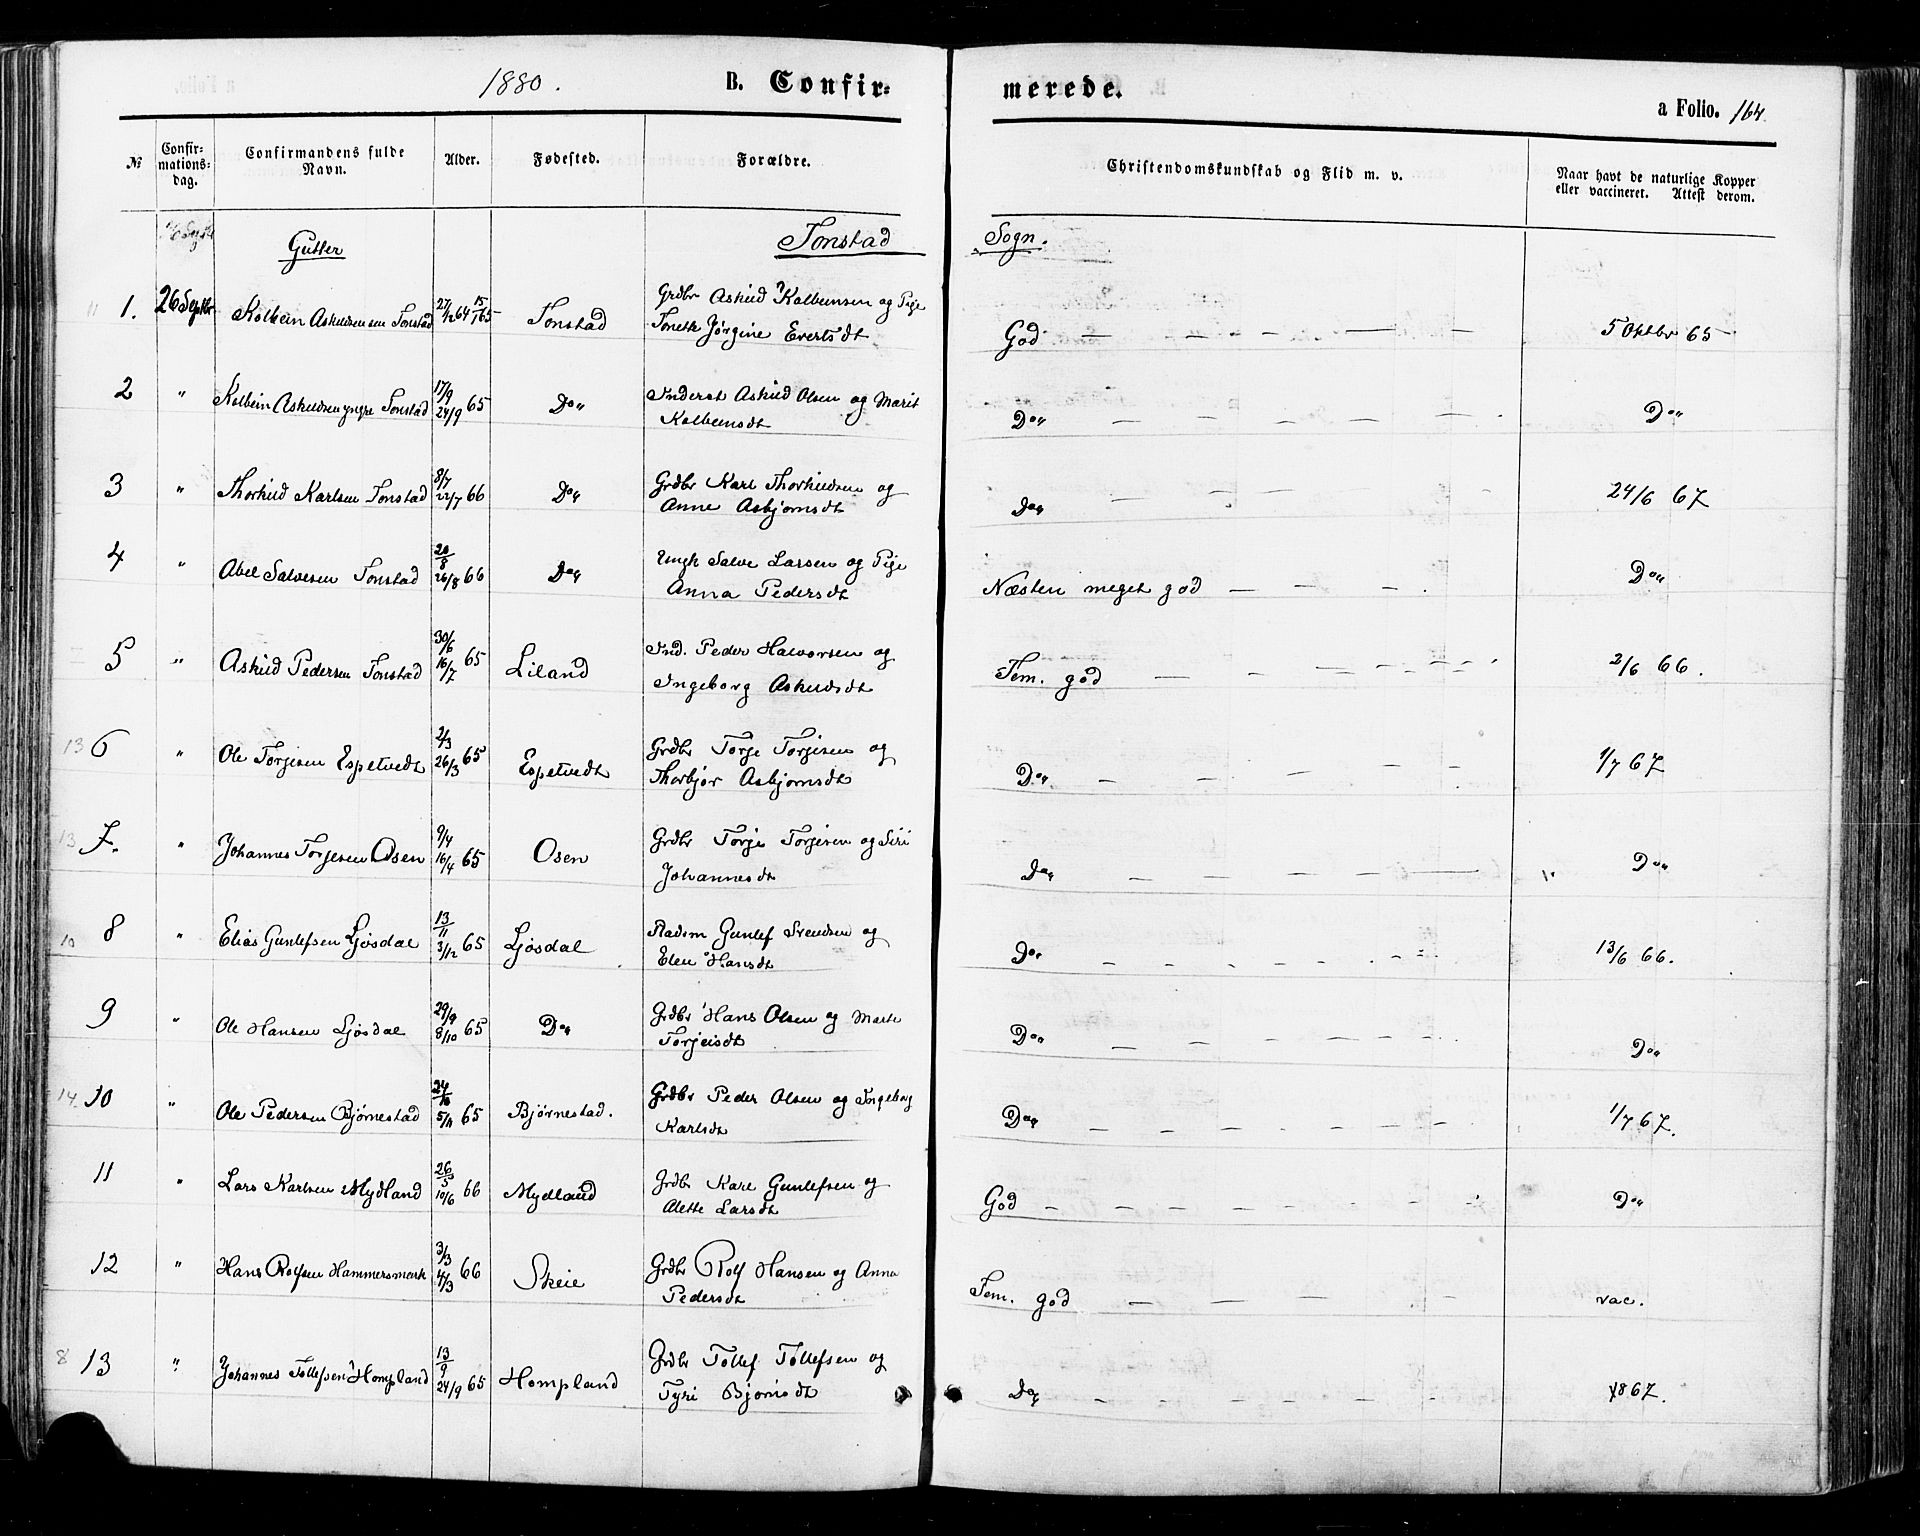 1880.
B. Confir-
merede.
a Folio. 164
№
Confir-
mations-
dag.
Confirmandens fulde
Navn.
Alder.
Fødested.
Forældre.
Christendomskundskab og Flid m. v.
Naar havt de naturlige Kopper
eller vaccineret. Attest derom.
Gutter
Tonstad
Sogn.
1. 26 Septbr Kolbein Askildsen Tonstad 27/12 64 15/1 65 Tonstad Grdbr Askild Kolbeinsen og Pige
Tonette Jørgine Evertsdt God — — — — — — 5 Oktbr 65
2 " Kolbein Askildsen yngre Tonstad 17/9 24/9 65 Do" Inderst Askild Olsen og Marit
Kolbeinsdt Do" — — — — — Do"
3 " Thorkild Karlsen Tonstad 8/7 22/7 66 Do" Grdbr Karl Thorkildsen og
Anne Asbjørnsdt Do" — — — — — 24/6 67
4 " Abel Salvesen Tonstad 20/8 26/8 66 Do" Ungk Salve Larsen og Pige
Anna Pedersdt Næsten meget god — — — Do"
5 " Askild Pedersen Tonstad 30/6 16/7 65 Liland Ind. Peder Halvorsen og
Ingeborg Askildsdt Tem. god — — — — — 2/6 66.
13 6 " Ole Torjesen Espetvedt 2/3 26/3 65 Espetvedt Grdbr Torje Torjesen og
Thorbjør Asbjørnsdt Do" — — — — — 1/7 67
13 7. " Johannes Torjesen Osen 9/4 16/4 65 Osen Grdbr Torje Torjesen og Siri
Johannesdt Do" — — — — — " Do"
10 8 " Elias Gunlefsen Ljosdal 13/11 3/12 65 Ljosdal Gunlef Svendsen og
Elen Hansdt Do" — — — — — 13/6 66.
9 " Ole Hansen Ljosdal 29/9 8/10 65 Do" Grdbr Hans Olsen og Marte
Torjeisdt Do" — — — — — Do"
14. 10 " Ole Pedersen Bjørnestad 24/10 5/11 65 Bjørnestad. Grdbr Peder Olsen og Ingeborg
Karlsdt Do" — — — — — 1/7 67.
11 " Lars Karlsen Mydland 26/5 10/6 66 Mydland Grdbr Karl Gunlefsen og
Alette Larsdt God — — — — — Do"
12 " Hans Rolfsen Hammersmark 3/3 4/3 66 Skeie Grdbr Rolf Hansen og Anna
Pedersdt Tem. god — — — — — vac.
8 13 " Johannes Tollefsen Hompland 13/9 24/9 65 Hompland Grdbr Tollef Tollefsen og
Tyri Bjørnsdt Do" — — — — — 1867.